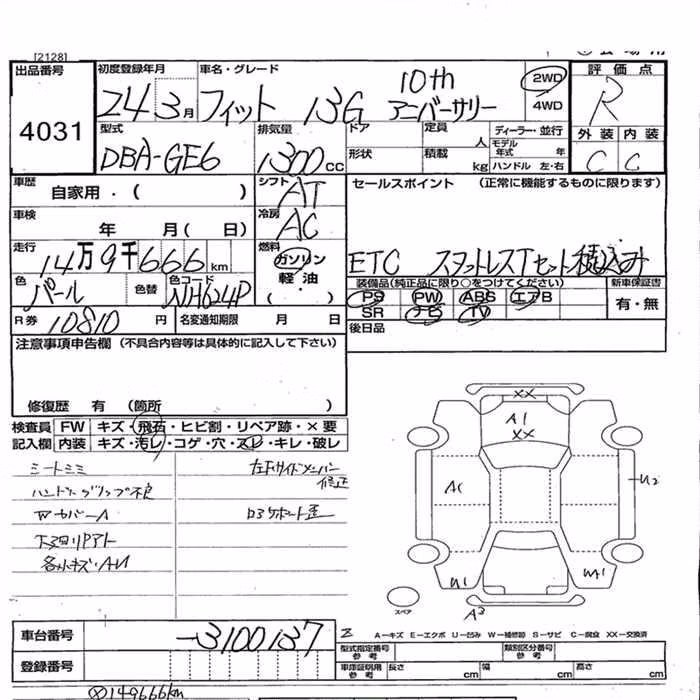 [2128]
出品番号 初度登録年月 車名・グレード 評価点
4031
24 3月 フィット 13G 10th アニバーサリー 2WD 4WD R
外装 内装
C C
型式 排気量 ドア 定員 人 ディーラー・並行
DBA-GE6 1300 cc 形状 積載 kg モデル年式 年 ハンドル 左・右
車歴 自家用・( ) シフト AT セールスポイント (正常に機能するものに限ります)
車検 年 月( 日) 冷房 AC
走行 14万9千666km 燃料 ガソリン 軽油 ( ) ETC スタットレスTセット積込み
色 パール 色替 色コード NH624P
装備品(純正品に限り○をつけてください) 新車保証書
PS PW ABS エアB 有・無
SR ナビ TV
R券 10810円 名変通知期限 月 日 後日品
注意事項申告欄 (不具合内容等は具体的に記入して下さい)
修復歴 有 (箇所
検査員 FW キズ・飛石・ヒビ割・リペア跡・×要
記入欄 内装 キズ・汚レ・コゲ・穴・スレ・キレ・破レ
シートミミ 左Fサイドメンバー修正
ハンドル グリップ不良
Wカバー A ロアサポート歪
下廻リサアト
各小キズ・AU
XX
A1
XX
A1
U2
U1
A3
スペア
車台番号 -3100137
A-キズ E-エクボ U-凹み W-補修跡 S-サビ C-腐食 XX-交換済
登録番号 型式指定番号 参考 類別区分番号 参考
車庫証明用 参考 長さ cm 幅 cm 高さ cm
149666km